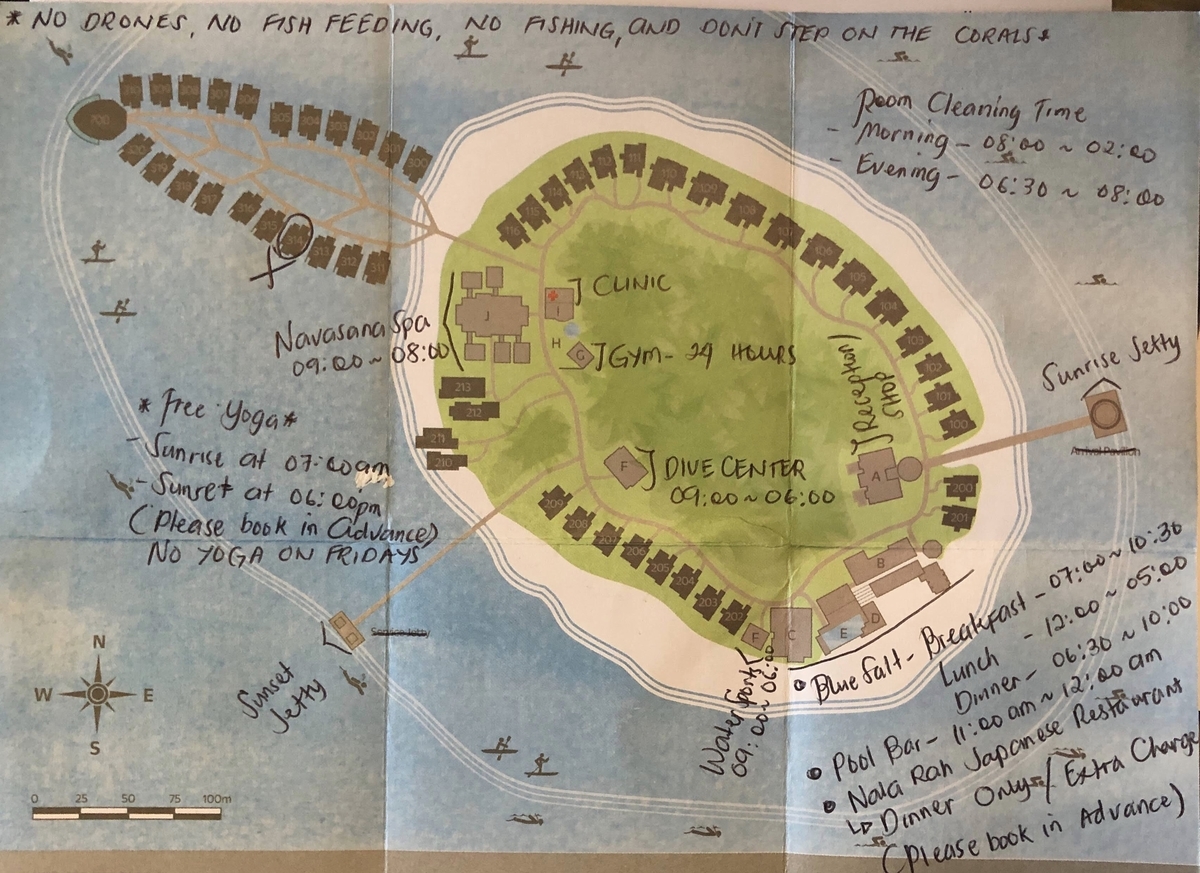 * NO DRONES, NO FISH FEEDING, NO FISHING, AND DON'T STEP ON THE CORALS *
Room Cleaning Time
- Morning - 08:00 ~ 02:00
- Evening - 06:30 ~ 08:00
310 309 308 307 306 305 304 303 302 301 300
700
320 319 318 317 316 315 314 313 312 311
116 115 114 113 112 111 110 109 108 107 106 105 104 103 102 101 100
J CLINIC
I
J
H
G
J GYM - 24 HOURS
Navasana Spa
09:00 ~ 08:00
J Reception /
Shop
Sunrise Jetty
Arrival Pavilion
213
212
211
210
* free Yoga *
- Sunrise at 07:00am
- Sunset at 06:00pm
(Please book in Advance)
NO YOGA ON FRIDAYS
F
J DIVE CENTER
09:00 ~ 06:00
A
200
201
209 208 207 206 205 204 203 202
B
C
D
E
F
Service Jetty
Sunset
Jetty
Water Sports
09:00 ~ 06:00
• Blue Salt - Breakfast - 07:00 ~ 10:30
Lunch - 12:00 ~ 05:00
Dinner - 06:30 ~ 10:00
• Pool Bar - 11:00 am ~ 12:00 am
• Nala Rah Japanese Restaurant
↳ Dinner Only / Extra Charge
(Please book in Advance)
N
W E
S
0 25 50 75 100m